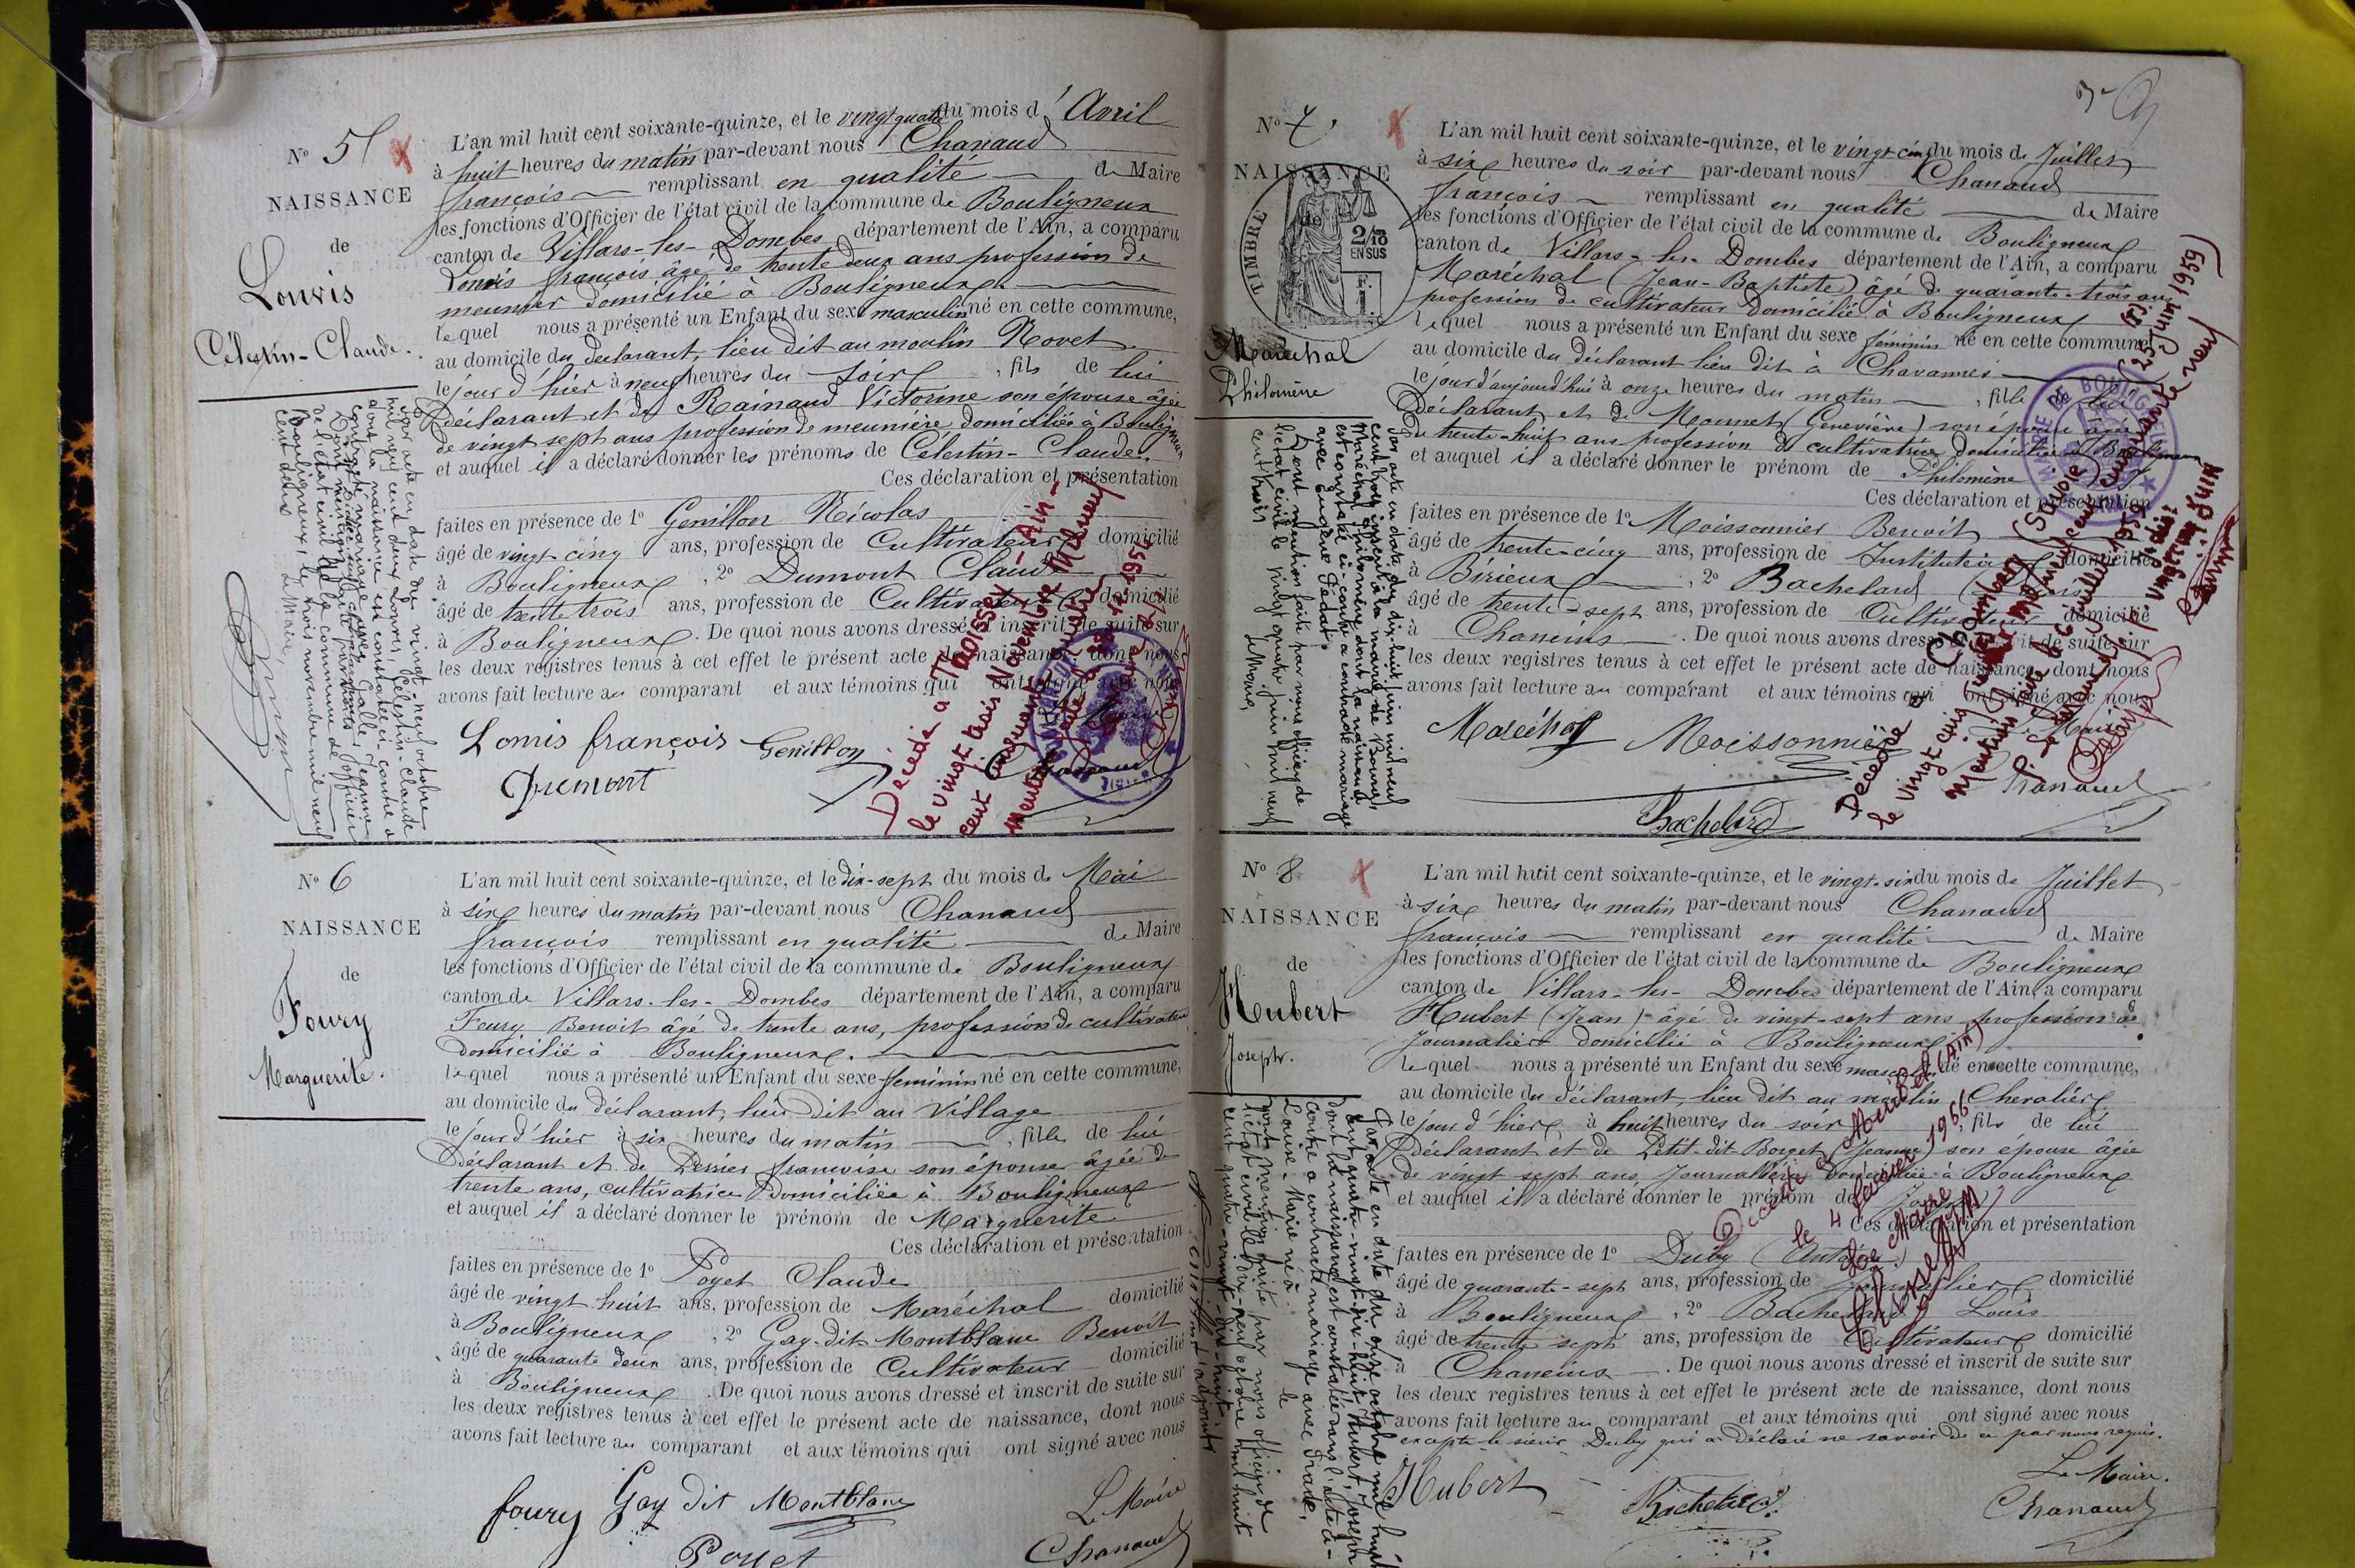 N° 5
NAISSANCE
de
Louvis
Célestin-Claude.
L'an mil huit cent soixante-quinze, et le vingt quatre du mois d'Avril
à huit heures du matin par-devant nous Chanaud
françois remplissant en qualité de Maire
les fonctions d'Officier de l'état civil de la commune de Bouligneux
canton de Villars-les-Dombes département de l'Ain, a comparu
Louvis françois âgé de trente deux ans profession de
meunier domicilié à Bouligneux
lequel nous a présenté un Enfant du sexe masculin né en cette commune,
au domicile du déclarant, lieu dit au moulin Rovet
le jour d'hier à neuf heures du soir, fils de lui
Déclarant et de Rainaud Victorine son épouse âgée
de vingt sept ans profession de meunière domiciliée à Bouligneux
et auquel il a déclaré donner les prénoms de Célestin-Claude.
Ces déclaration et présentation
faites en présence de 1° Genillon Nicolas
âgé de vingt cinq ans, profession de Cultivateur domicilié
à Bouligneux, 2° Dumont Claude
âgé de trente trois ans, profession de Cultivateur domicilié
à Bouligneux. De quoi nous avons dressé et inscrit de suite sur
les deux registres tenus à cet effet le présent acte de naissance, dont nous
avons fait lecture au comparant et aux témoins qui ont signé avec nous
Le Maire
Lomis françois Genillon
Dumont
Chanaud
Par acte en date du vingt-neuf octobre
mil neuf cent deux Louvis Célestin-Claude
dont la naissance est constatée ci-contre a
contracté mariage avec
Dont mention faite par nous officier
de l'état civil de la commune de
Bouligneux, le trois novembre mil neuf
cent deux
Le Maire
Décédé à THOISSEY -Ain-
le vingt trois Novembre Mil neuf
cent cinquante quatre
N° 6
NAISSANCE
de
Foury
Marguerite.
L'an mil huit cent soixante-quinze, et le dix-sept du mois de Mai
à six heures du matin par-devant nous Chanaud
françois remplissant en qualité de Maire
les fonctions d'Officier de l'état civil de la commune de Bouligneux
canton de Villars-les-Dombes département de l'Ain, a comparu
Foury Benoit âgé de trente ans, profession de cultivateur
domicilié à Bouligneux.
lequel nous a présenté un Enfant du sexe féminin né en cette commune,
au domicile du déclarant, lieu dit au Village
le jour d'hier à six heures du matin, fille de lui
Déclarant et de Perrier françoise son épouse âgée de
trente ans, cultivatrice domiciliée à Bouligneux
et auquel il a déclaré donner le prénom de Marguerite
Ces déclaration et présentation
faites en présence de 1° Poyet Claude
âgé de vingt huit ans, profession de Maréchal domicilié
à Bouligneux, 2° Gay-dit-Montblanc Benoît
âgé de quarante deux ans, profession de Cultivateur domicilié
à Bouligneux. De quoi nous avons dressé et inscrit de suite sur
les deux registres tenus à cet effet le présent acte de naissance, dont nous
avons fait lecture au comparant et aux témoins qui ont signé avec nous
foury Gay dit Montblanc
Le Maire
Poyet
Chanaud
N° 7
NAISSANCE
de
TIMBRE
2/10
EN SUS
Maréchal
Philomène
L'an mil huit cent soixante-quinze, et le vingt cinq du mois de Juillet
à six heures du soir par-devant nous Chanaud
françois remplissant en qualité de Maire
les fonctions d'Officier de l'état civil de la commune de Bouligneux
canton de Villars-les-Dombes département de l'Ain, a comparu
Maréchal (Jean-Baptiste) âgé de quarante-trois ans
profession de cultivateur domicilié à Bouligneux
lequel nous a présenté un Enfant du sexe féminin né en cette commune,
au domicile du déclarant lieu dit à Chavannes
le jour d'aujourd'hui à onze heures du matin, fille de lui
Déclarant, et de Monnet (Geneviève) son épouse âgée
de trente-huit ans profession de cultivatrice domiciliée à Bouligneux
et auquel il a déclaré donner le prénom de Philomène
Ces déclaration et présentation
faites en présence de 1° Moissonnier Benoît
âgé de trente-cinq ans, profession de Instituteur domicilié
à Birieux, 2° Bachelard
âgé de trente-sept ans, profession de Cultivateur domicilié
à Chaneins. De quoi nous avons dressé et inscrit de suite sur
les deux registres tenus à cet effet le présent acte de naissance, dont nous
avons fait lecture au comparant et aux témoins qui ont signé avec nous
Le Maire
Maréchal Moissonnier
Chanaud
Bachelard
Par acte en date du dix-huit juin mil neuf
cent trois inscrit à la mairie de Bourg,
Maréchal Philomène, dont la naissance
est constatée ci-contre a contracté mariage
avec Eugène
Dont mention faite par nous officier de
l'état civil le vingt quatre juin mil neuf
cent trois
Le Maire,
Décédée à Chambéry (Savoie)
le vingt cinq Juin mil neuf cent cinquante neuf
(25 juin 1959)
N° 8
NAISSANCE
de
Hubert
Joseph.
L'an mil huit cent soixante-quinze, et le vingt-six du mois de Juillet
à six heures du matin par-devant nous Chanaud
françois remplissant en qualité de Maire
les fonctions d'Officier de l'état civil de la commune de Bouligneux
canton de Villars-les-Dombes département de l'Ain, a comparu
Hubert (Jean) âgé de vingt-sept ans profession de
Journalier domicilié à Bouligneux
lequel nous a présenté un Enfant du sexe masculin né en cette commune,
au domicile du déclarant, lieu dit au moulin Chevalier
le jour d'hier, à huit heures du soir, fils de lui
Déclarant et de Petit-dit-Borget (Jeanne) son épouse âgée
de vingt sept ans, Journalière domiciliée à Bouligneux
et auquel il a déclaré donner le prénom de Joseph
Ces déclaration et présentation
faites en présence de 1° Duby (Antoine)
âgé de quarante-sept ans, profession de Journalier domicilié
à Bouligneux, 2° Bachelard Louis
âgé de trente sept ans, profession de Cultivateur domicilié
à Chaneins. De quoi nous avons dressé et inscrit de suite sur
les deux registres tenus à cet effet le présent acte de naissance, dont nous
avons fait lecture au comparant et aux témoins qui ont signé avec nous
excepté le sieur Duby qui a déclaré ne savoir de ce par nous requis.
Le Maire.
Hubert Bachelard
Chanaud
Par acte en date du onze octobre mil huit
cent quatre-vingt-dix-huit, Hubert, Joseph
dont la naissance est constatée dans l'acte ci-
contre a contracté mariage avec
Louise-Marie né à le
dont mention faite par nous officier de
l'état civil le dix-neuf octobre mil huit
cent quatre-vingt-dix-huit
Décédé à
le 4 février 1966
Le Maire